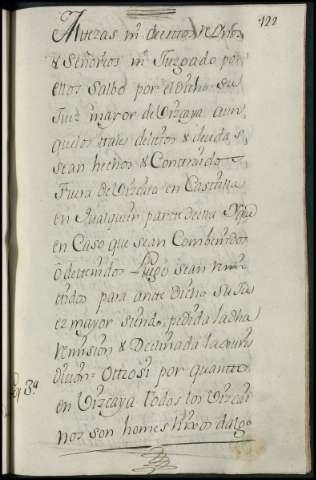 122
Altezas ni
& Señorios ni Juzgado por
ellos salbo por el dicho su
Juez mayor de Vizcaya aun
que los tales delitos & deudas
sean hechos & Contraidos
Fuera de Vizcaya en Castilla
en qualquier parte de ella
en Caso que sean Combenidos
o detenidos Luego sean remi
tidos para ante dicho su Ju
ez mayor siendo pedida la dha
remision & Declinada la juris
dicion: Otrosi por quanto
Ley 3.ª
en Vizcaya todos los Vizcai
nos son homes hixos dalgo